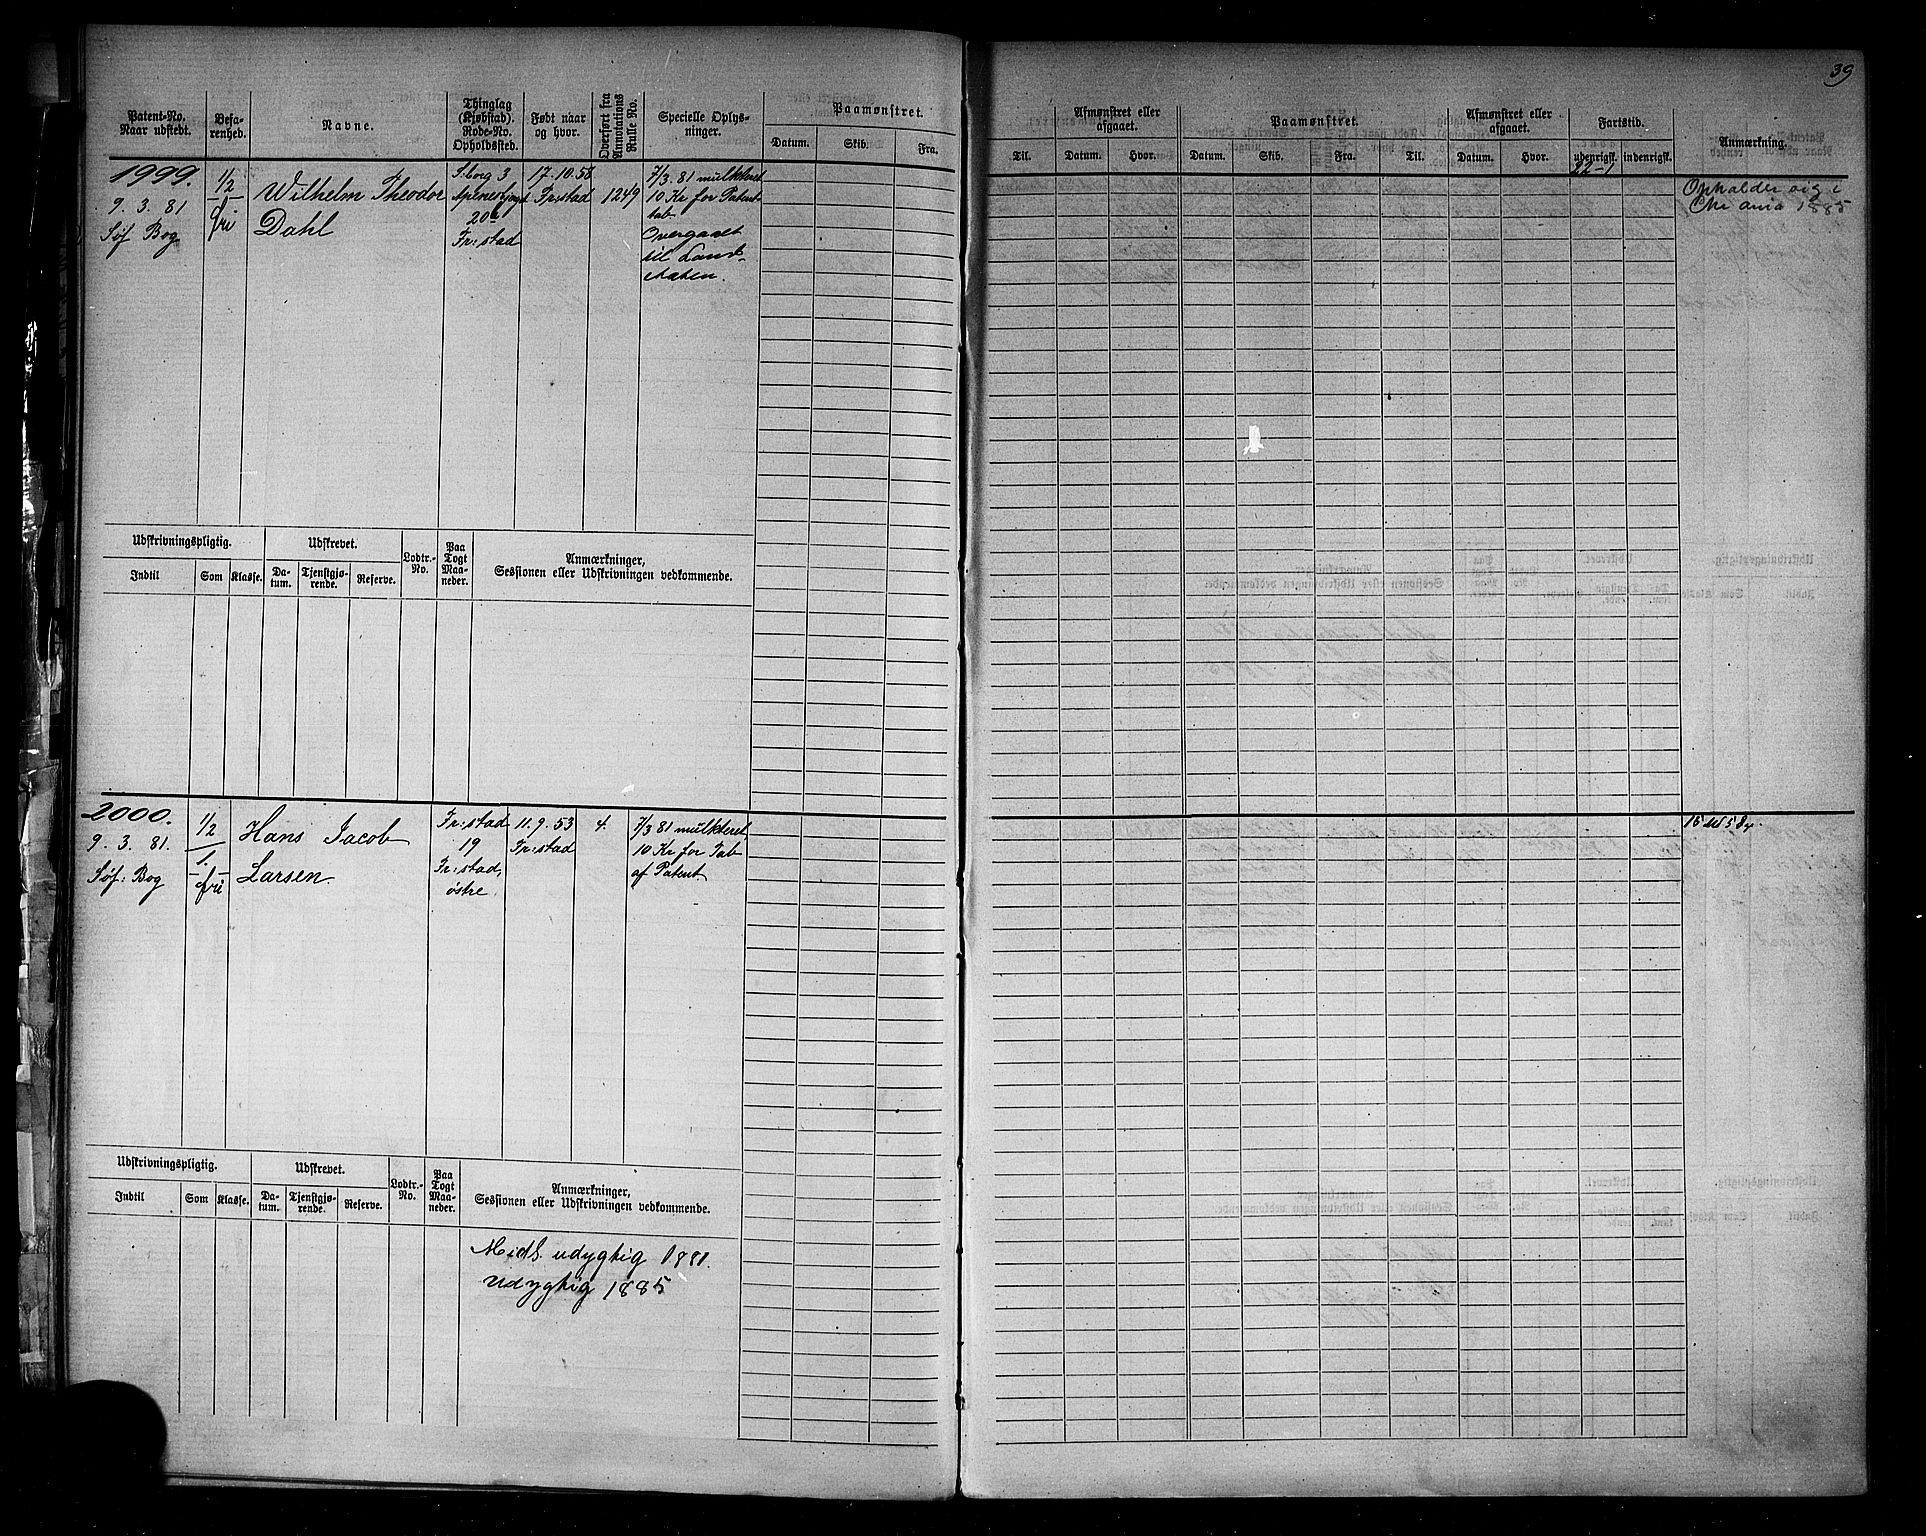 39
Patent-No.
Naar udstedt.
Befa-
renhed.
Navne.
Thinglag
(Kjøbstad).
Rode-No.
Opholdssted.
Født naar
og hvor.
Overført fra
Annotations
Rulle No.
Specielle Oplys-
ninger.
Paamønstret.
Datum. Skib. Fra.
Til.
Afmønstret eller
afgaaet.
Datum. Hvor.
Paamønstret.
Datum. Skib. Fra. Til.
Afmønstret eller
afgaaet.
Datum. Hvor.
Fartstid.
udenrigsk. indenrigsk.
Anmærkning.
1999.
9. 3. 81
Søf. Bog
1/2
fri
Wilhelm Theodor
Dahl
S.borg 3
20a
Fr:stad
17. 10. 58
Fr:stad
1249
7/3. 81 mulkteret
10 Kr for Patent
tab
Overgaaet
til Land-
staten.
22-1
Opholder sig i
Chr ania 1885
Udskrivningspligtig.
Indtil Som Klasse.
Udskrevet.
Da-
tum.
Tjenstgjø-
rende.
Reserve.
Lodtr.-
No.
Paa
Togt
Maa-
neder.
Anmærkninger,
Sessionen eller Udskrivningen vedkommende.
2000.
9. 3. 81.
Søf: Bog
1/2
1.
fri
Hans Jacob
Larsen.
Fr:stad
19
Fr:stad,
østre.
11. 9. 53
Fr:stad
4.
7/3 81 mulkteret
10 Kr for Tab
af Patent.
Udskrivningspligtig.
Indtil Som Klasse.
Udskrevet.
Da-
tum.
Tjenstgjø-
rende.
Reserve.
Lodtr.-
No.
Paa
Togt
Maa-
neder.
Anmærkninger,
Sessionen eller Udskrivningen vedkommende.
Midl. udygtig 1881.
Udygtig 1885